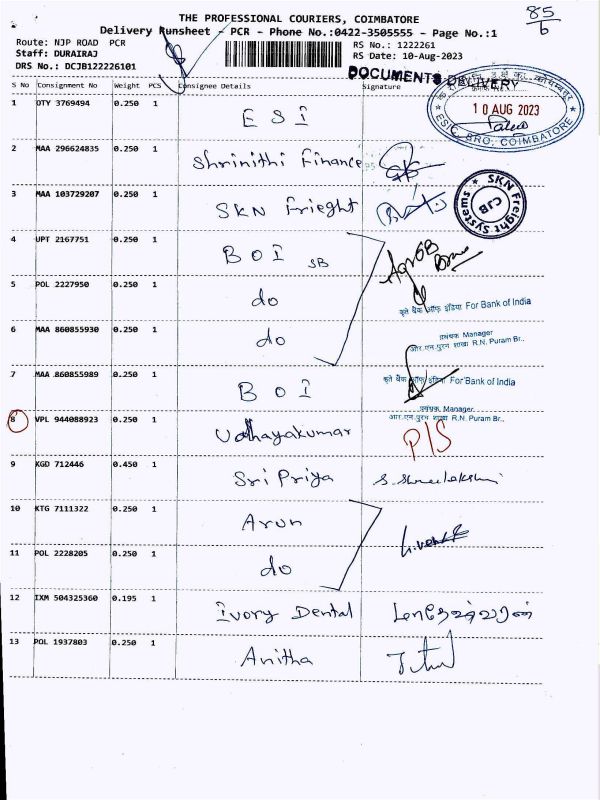 85
6
THE PROFESSIONAL COURIERS, COIMBATORE
Delivery Runsheet - PCR - Phone No.:0422-3505555 - Page No.:1
Route: NJP ROAD PCR
RS No.: 1222261
Staff: DURAIRAJ
RS Date: 10-Aug-2023
DRS No.: DCJB122226101
DOCUMENTS DELIVERY
S No Consignment No Weight PCS Consignee Details Signature
10 AUG 2023
ESIC, SRO, COIMBATORE
1 OTY 3769494 0.250 1 ESI
2 MAA 296624835 0.250 1 Shrinithi Finance
3 MAA 103729207 0.250 1 SKN Frieght
SKN Freight Systems
CJB
4 UPT 2167751 0.250 1 BOI SB
5 POL 2227950 0.250 1 do
कृते बैंक ऑफ़ इंडिया For Bank of India
6 MAA 860855930 0.250 1 do
प्रबंधक Manager
आर.एन.पुरम शाखा R.N. Puram Br.,
7 MAA 860855989 0.250 1 BOI
कृते बैंक ऑफ़ इंडिया For Bank of India
प्रबंधक, Manager,
आर.एन.पुरम शाखा R.N. Puram Br.,
8 VPL 944088923 0.250 1 Udhayakumar P/S
9 KGD 712446 0.450 1 Sri Priya
10 KTG 7111322 0.250 1 Arun
11 POL 2228205 0.250 1 do
12 IXM 504325360 0.195 1 Ivory Dental
13 POL 1937803 0.250 1 Anitha